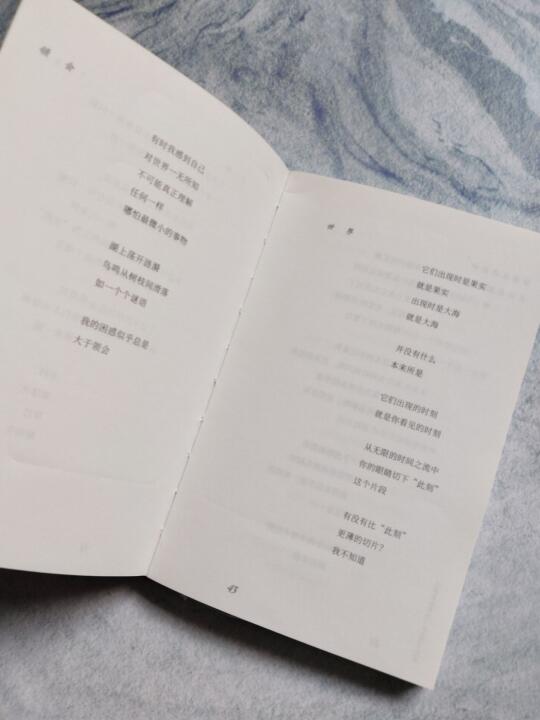 领会
有时我感到自己
对世界一无所知
不可能真正理解
任何一样
哪怕最微小的事物
湖上荡开涟漪
鸟鸣从树枝间滑落
如一个个谜语
我的困惑似乎总是
大于领会
世界
它们出现时是果实
就是果实
出现时是大海
就是大海
并没有什么
本来所是
它们出现的时刻
就是你看见的时刻
从无限的时间之流中
你的眼睛切下“此刻”
这个片段
有没有比“此刻”
更薄的切片？
我不知道
43